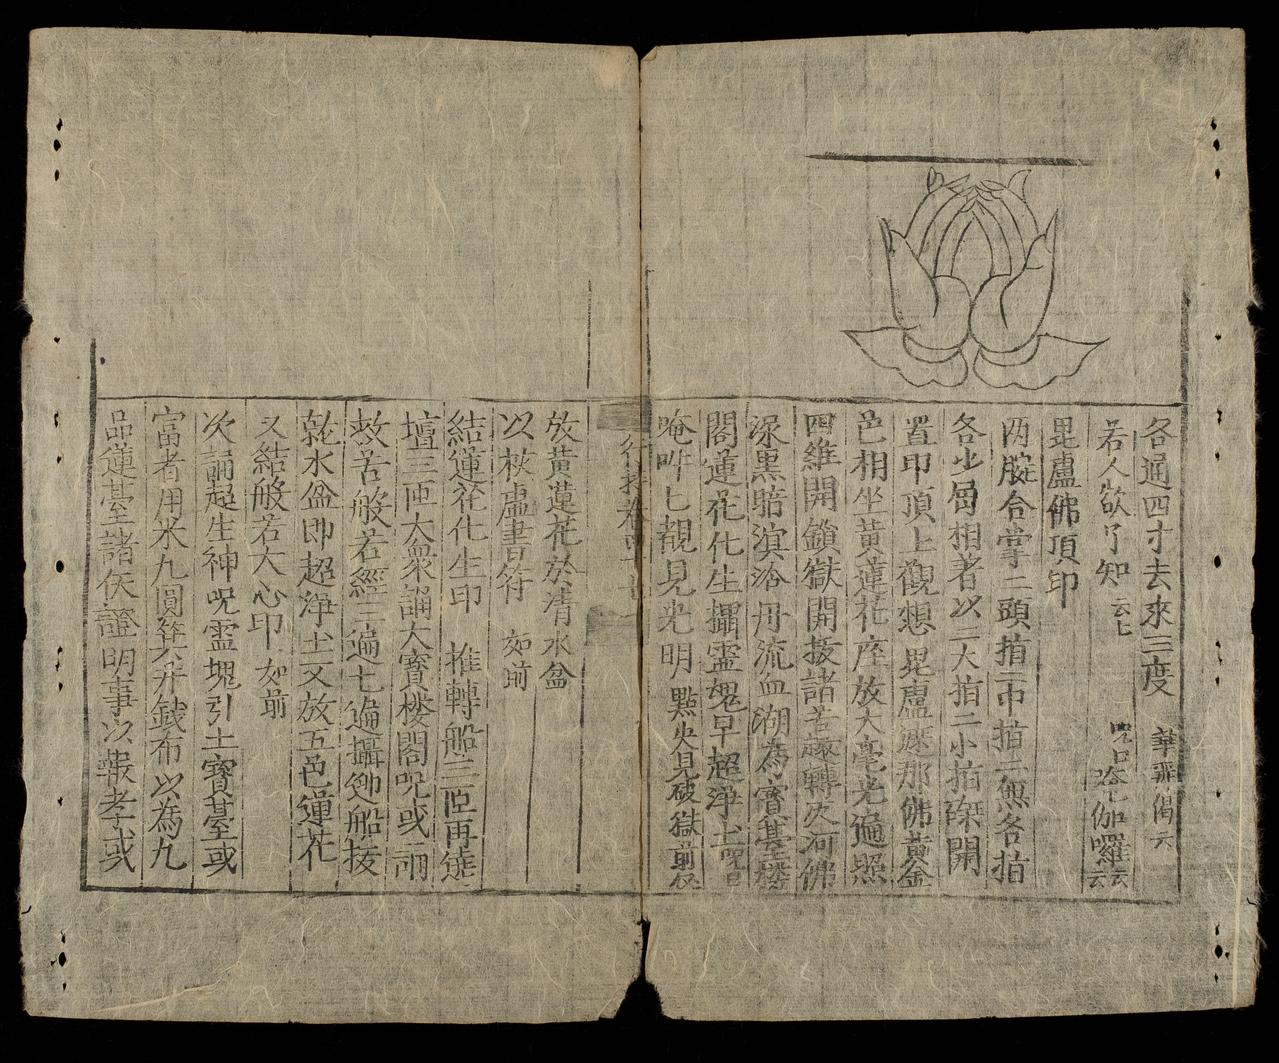 各通四寸去來三度 華
若人欲了知 云七 呪曰 唵 伽囉 云云
毘盧佛頂印
两腕合掌二頭指二中指二無名指
各少屈相著以二大指二小指磔開
置印頂上觀想毘盧遮那佛黄金
色相坐黄蓮花座放大毫光遍照
四維開鎖獄開拔諸苦趣轉次河佛
深黒暗溟浴丹流血湖為寳臺樓
閣蓮花化生攝靈魂早超浄土呪曰
唵吽七觀見光明 點火見破獄前
行持卷四
放黄蓮花於清水盆
以杖虚書符 如前
結蓮花化生印 推轉船三匝再遶
壇三匝大衆誦大寳楼閣呪或一兩
故苦般若經三遍七遍攝船拔
水盆即超浄土又放五色蓮花
又結般若大心印 如前
次誦起生神呪靈魂引上寳䑓或
富者用米九圓等六升錢布以為九
品蓮䑓諸天證明事以報孝或